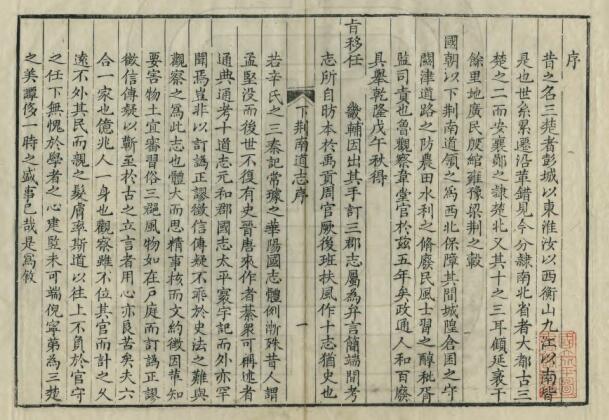 序
昔之名三楚者彭城以東淮汝以西衡山九江以南皆
是也世系累遷沿革錯見今分隸南北省者大都古三
楚之二而安襄鄖之隸楚北又其十之三耳顧延袤千
餘里地廣民殷綰雍豫梁荆之轂
國朝以下荆南道領之爲西北保障其間城隍倉囷之守
關津道路之防農田水利之脩廢民風士習之醇秕胥
監司責也魯觀察韋堂官於茲五年矣政通人和百廢
具舉乾隆戊午秋得
旨移任
畿輔因出其手訂三郡志屬為弁言簡端間考
志所自昉本於禹貢周官厥後班扶風作十志猶史也
下荆南道志序
一
若辛氏之三秦記常璩之華陽國志體例漸殊昔人謂
孟堅没而後世不復有史晉唐來作者綦衆可稱述者
通典通考十道志元和郡國志太平寰宇記而外亦罕
聞焉豈非以訂譌正謬徵信傳疑不乖於史法之難與
觀察之爲此志也體大而思精事核而文約徵因革知
要害物土宜審習俗三郡風物如在戶庭而訂譌正謬
徵信傳疑以蘄至於古之立言者用心亦良苦矣夫六
合一家也億兆人一身也觀察雖不位其官而計之久
遠不外其民而親之髮膚率斯道以往上不負於官守
之任下無愧於學者之心建豎未可端倪寧第為三楚
之美譚侈一時之盛事已哉是爲敘